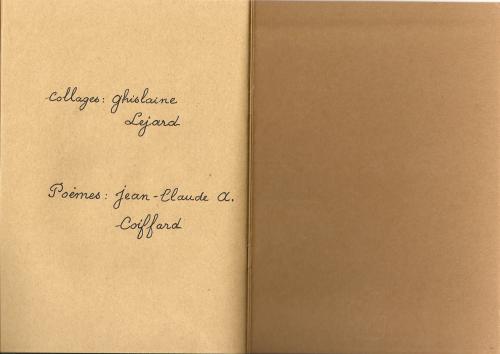 Collages: Ghislaine
Lejard
Poèmes: Jean-Claude A.
Coiffard